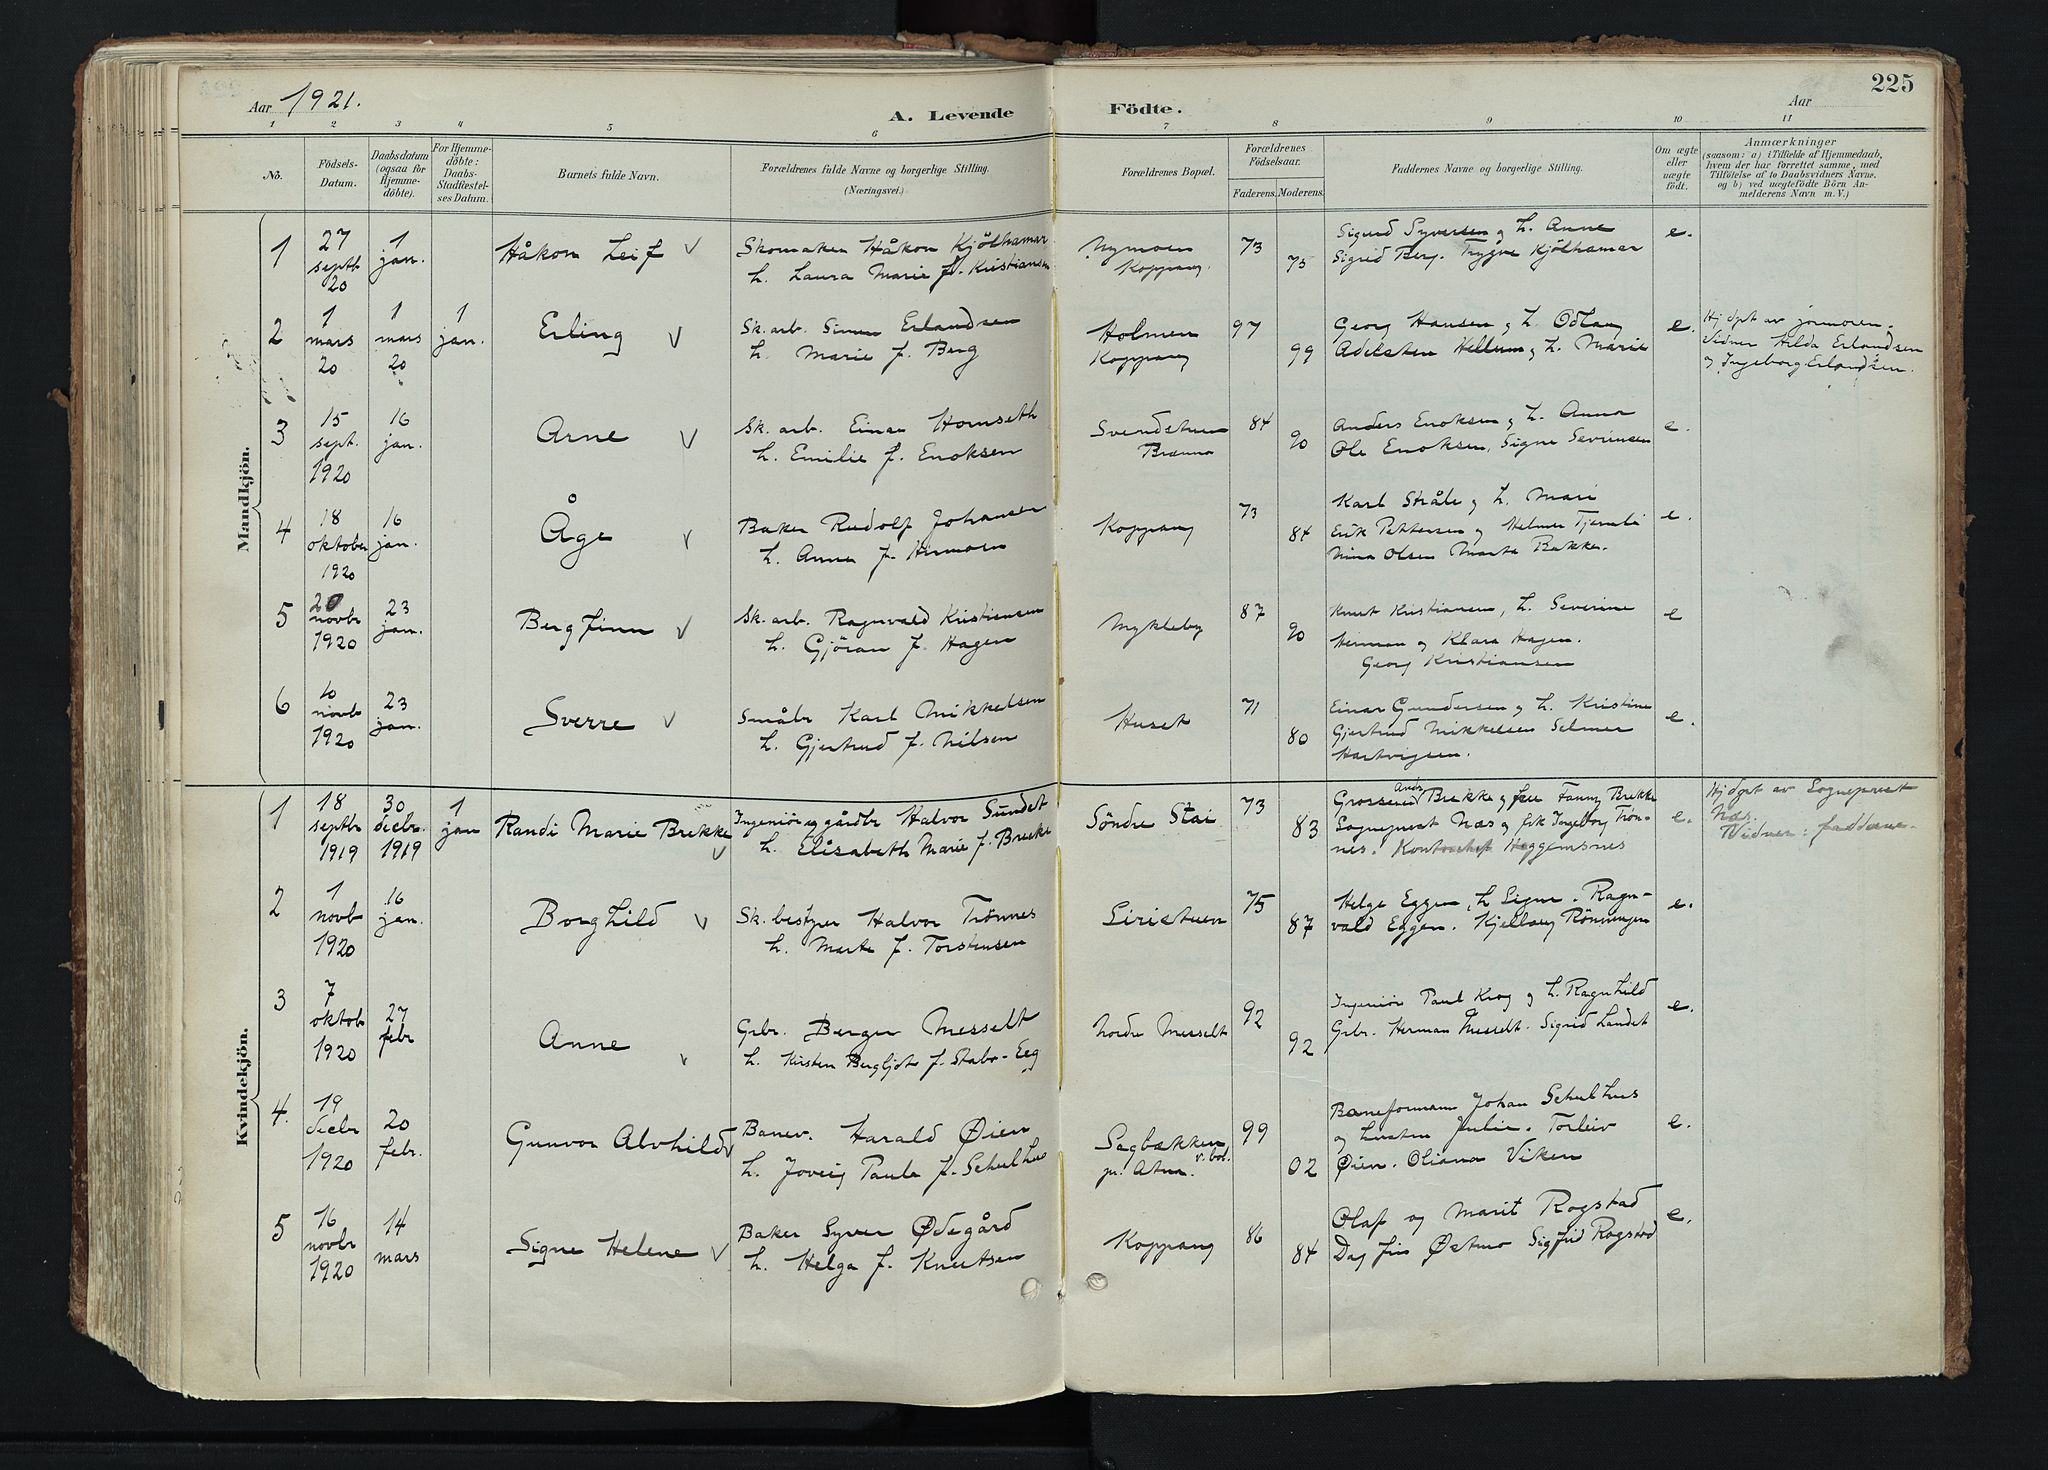 225
Aar 1921.
A. Levende Födte.
Aar
1 2 3 4 5 6 7 8 9 10 11
No.
Födsels-
Datum.
Daabsdatum
(ogsaa for
Hjemme-
döbte).
For Hjemme-
döbte:
Daabs-
Stadfæstel-
ses Datum.
Barnets fulde Navn.
Forældrenes fulde Navne og borgerlige Stilling.
(Næringsvei.)
Forældrenes Bopæl.
Forældrenes
Födselsaar.
Faderens. Moderens.
Faddernes Navne og borgerlige Stilling.
Om ægte
eller
uægte
födt.
Anmærkninger
(saasom: a) i Tilfælde af Hjemmedaab,
hvem der har forrettet samme, med
Tilföielse af to Daabsvidners Navne.
og b) ved uægtefödte Börn An-
melderens Navn m. V.)
Mandkjön.
1
27
septb
20
1
jan.
Håkon Leif V
Skomaker Håkon Kjölhamar
h. Laura Marie f. Kristiansen
Nymoen
Koppang.
73
75
Sigurd Syversen og h. Anne
Sigrid Berg. Trygve Kjölhamar
e.
2
1
mars
20
1
mars
20
1
jan.
Erling V
Sk. arb. Simen Erlandsen
h. Marie f. Berg
Holmen
Koppang
97
99
Georg Hansen og h. Odlaug
Adelsten Hellum og h. Marie
e.
Hjdpt av jormoren.
Vidner Hilda Erlandsen
og Ingeborg Erlandsen.
3
15
sept.
1920
16
jan.
Arne V
Sk. arb. Einar Homseth
h. Emilie f. Enoksen
Svendstuen
Brænna
84
90
Anders Enoksen og h. Anna
Ole Enoksen, Signe Sevrinsen
e.
4
18
oktober
1920
16
jan.
Åge V
Baker Rudolf Johansen
h. Anna f. Hirmoen
Koppang
73
84
Karl Stråle og h. Mari
Erik Pettersen og Helmer Tjernli
Nina Olsen Marta Bakke.
e.
5
20
novbr
1920
23
jan.
Bergfinn V
Sk. arb. Ragnvald Kristiansen
h. Gjöran f. Hagen
Mykleby
87
90
Knut Kristiansen, h. Severine
Herman og Klara Hagen.
Georg Kristiansen
e
6
10
novb
1920
23
jan.
Sverre V
Småbr Karl Mikkelsen
h. Gjertrud f. Nilsen
Huset
71
80
Einar Gundersen og h. Kristine
Gjertrud Mikkelsen Selmer
Hartvigsen.
e.
Kvindekjön.
1
18
septbr
1919
30
decbr.
1919
1
jan
Randi Marie Brekke V
Ingeniör og gårdbr Halvor Sundet
h. Elisabeth Marie f. Brekke
Söndre Stai
73
83
Grosserer Andr Brekke og frue Fanny Brekke
Sogneprest Næs og frk Ingeborg Trön-
nes. Kontorchef Heggemsnes
e.
Hjdpt av Sogneprest
Næs.
Vidner: fadderne.
2
1
novb
1920
16
jan.
Borghild V
Sk. bestyrer Halvor Trönnes
h. Marte f. Torstensen
Siristuen
75
87
Helge Eggen, h Signe. Ragn-
vald Eggen. Kjellaug Rönningen
e.
3
7
oktob
1920
27
febr
Anne V
Grbr. Berger Messelt
h. Kirsten Bergljot f. Stabo-Eeg
Nordre Messelt
92
92
Ingeniör Paul Krog og h. Ragnhild
Grbr. Herman Messelt. Sigrid Landet
e.
4.
19
decbr
1920
20
febr.
Gunvor Alvhild V
Banev. Harald Øien
h. Joveig Paula f. Schulhus
Sagbækken
v. bol.
pr. Atna.
99
02
Baneformann Johan Schulhus
og hustru Julie. Torleiv
Øien. Oliana Viken
e.
5
16
novbr
1920
14
mars
Signe Helene V
Baker Syver Ødegård
h. Helga f. Knutsen
Koppang
86
84
Olaf og Marit Rogstad
Dagfin Østmo Sigfrid Rogstad
e.